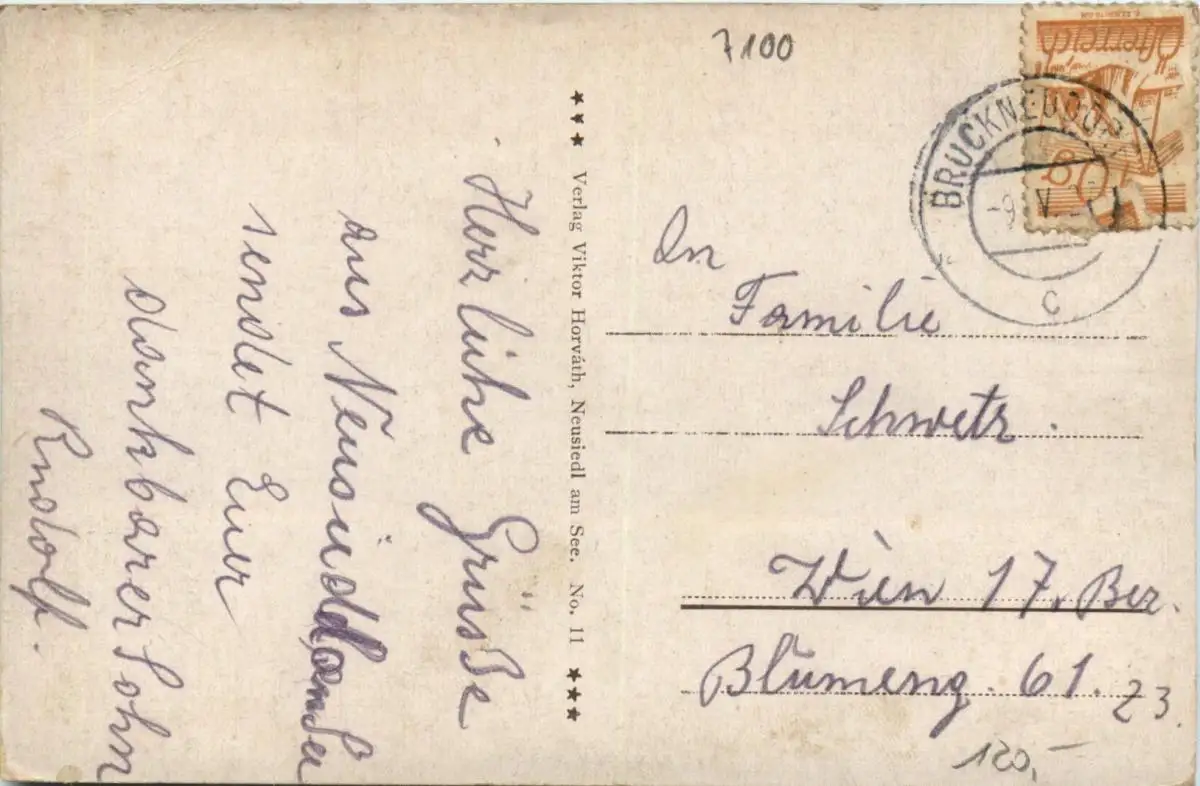 7100
Österreich
10 g
BRUCKNEUDORF
-9. V. 2
c
Herzliche Grüsse
aus Neusiedl am See
sendet Euer
dankbarer Sohn
Rudolf.
★★★ Verlag Viktor Horváth, Neusiedl am See. No. 11 ★★★
An
Familie
Schwetz.
Wien 17. Bez.
Blumeng. 61. Z3.
120,-